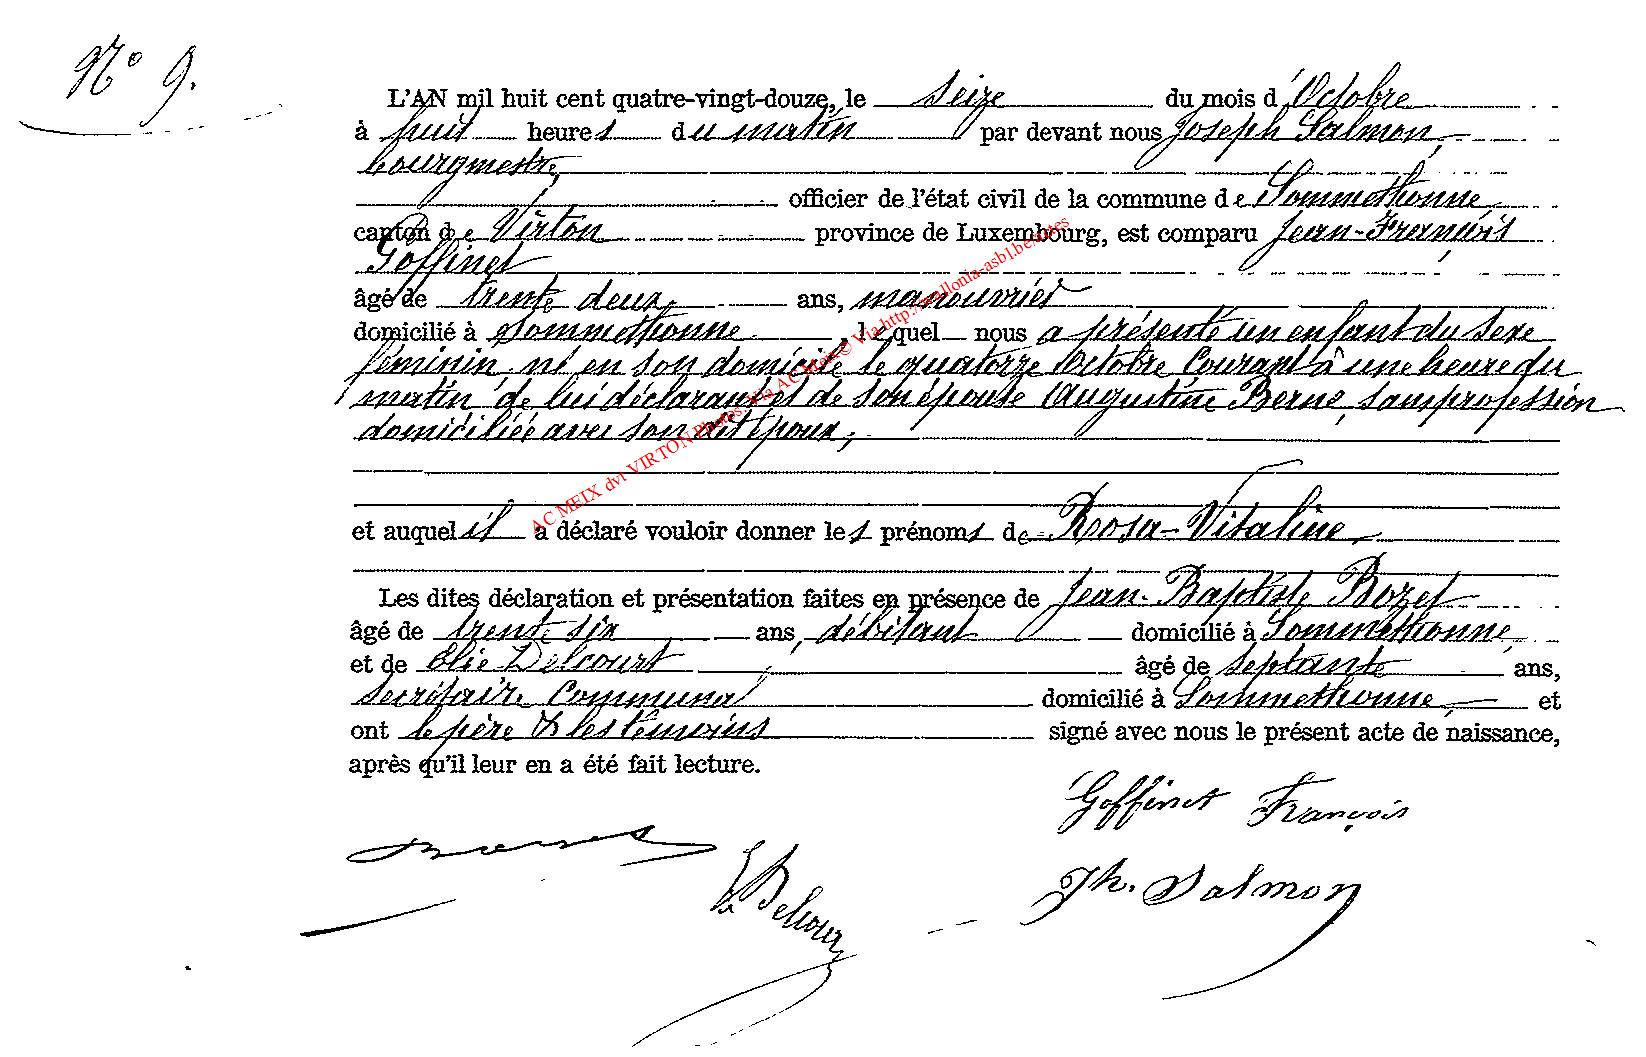 N° 9.
L'AN mil huit cent quatre-vingt-douze, le seize du mois d'Octobre
à huit heures du matin par devant nous Joseph Salmon,
bourgmestre,
officier de l'état civil de la commune de Sommethonne,
canton de Virton province de Luxembourg, est comparu Jean-François
Goffinet
âgé de trente deux ans, manouvrier
domicilié à Sommethonne, lequel nous a présenté un enfant du sexe
féminin né en son domicile le quatorze Octobre courant à une heure du
matin, de lui déclarant et de son épouse Augustine Berne, sans profession
domiciliée avec son dit époux,
et auquel il a déclaré vouloir donner les prénoms de Rosa-Vitaline
Les dites déclaration et présentation faites en présence de Jean-Baptiste Bozet
âgé de trente six ans, débitant domicilié à Sommethonne,
et de Elie Delcourt âgé de septante ans,
secrétaire communal domicilié à Sommethonne, et
ont le père & les témoins signé avec nous le présent acte de naissance,
après qu'il leur en a été fait lecture.
Goffinet François
Bozet
E. Delcour
Jh. Salmon